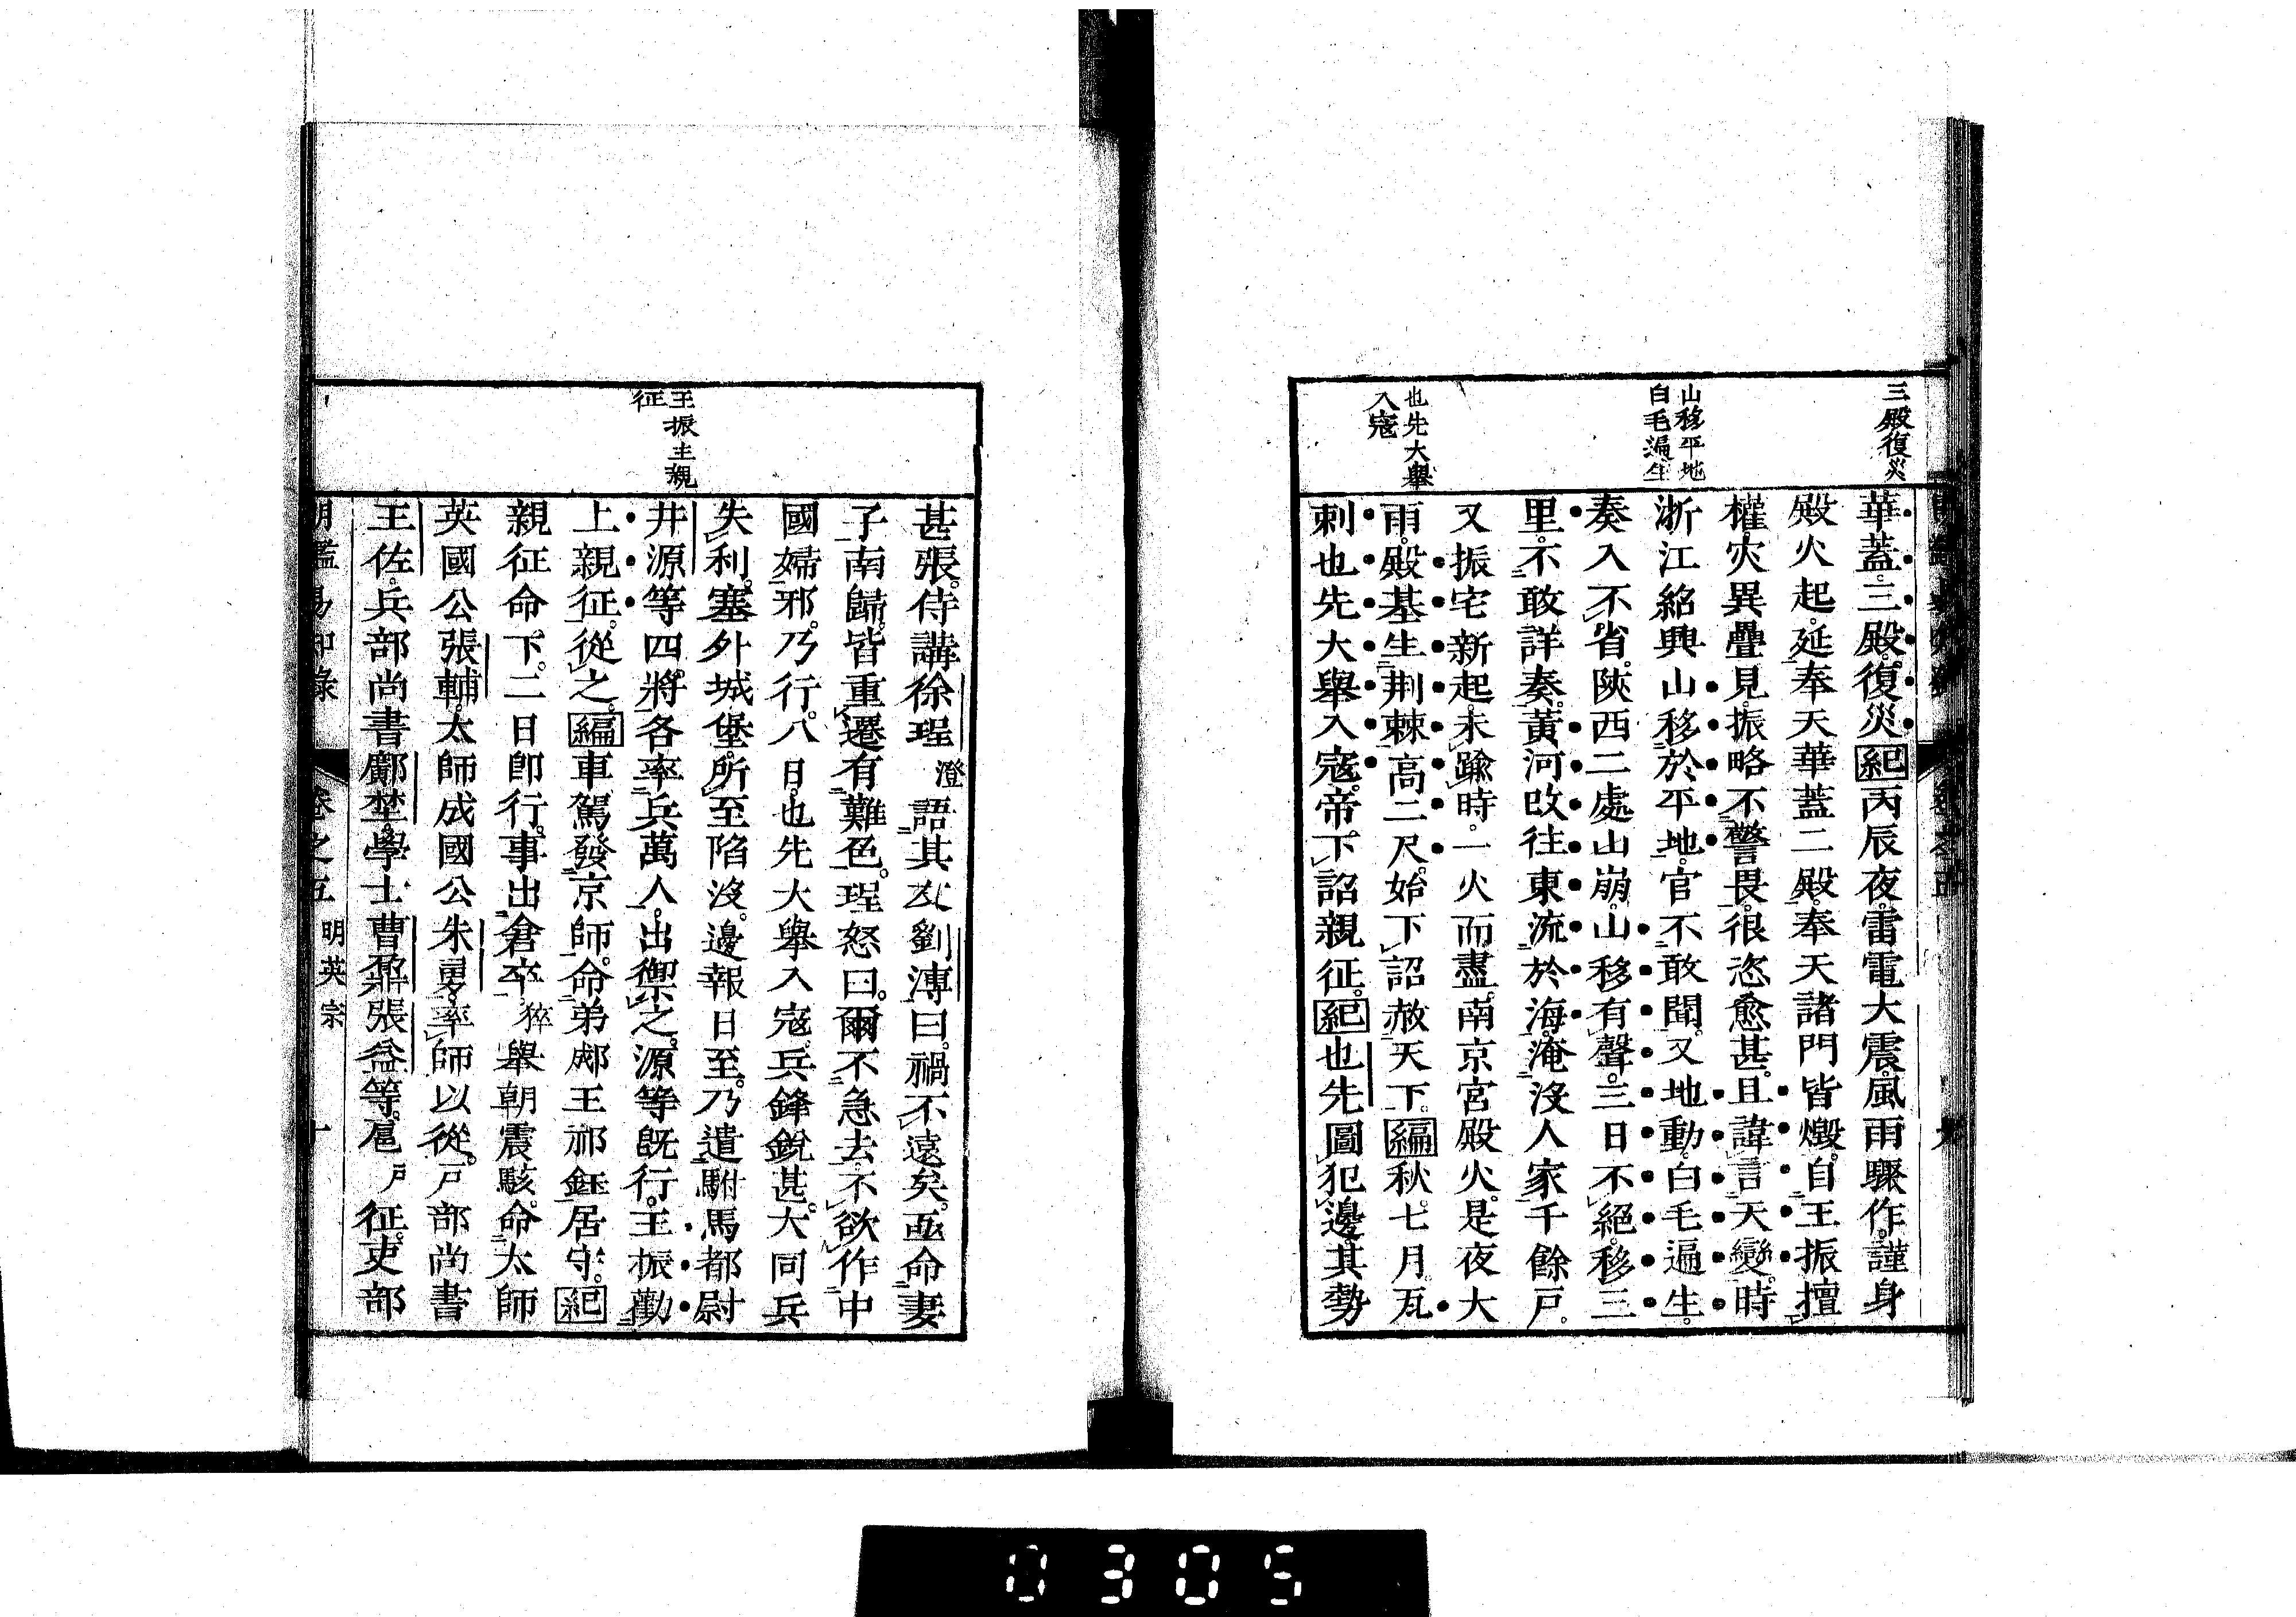 三殿復災
山移平地
白毛遍生
也先大舉
入寇
華蓋。三殿復災紀丙辰夜。雷電大震。風雨驟作。謹身
殿火起。延奉天華蓋二殿。奉天諸門皆燬。自王振擅
權。灾異疊見。振略不警畏。很恣愈甚。且諱言天變。時
浙江紹興山移於平地。官不敢聞。又地動。白毛遍生。
奏入不省。陝西二處山崩。山移有聲。三日不絕。移三
里。不敢詳奏。黃河改往東流於海。淹沒人家千餘戸。
又振宅新起。未踰時。一火而盡。南京宮殿火。是夜大
雨。殿基生荆棘高二尺。始下詔赦天下。編秋。七月。瓦
剌也先大舉入寇。帝下詔親征。紀也先圖犯邊。其勢
王振主親
征
甚張。侍講徐珵澄語其友劉溥曰。禍不遠矣。亟命妻
子南歸。皆重遷有難色。珵怒曰。爾不急去。不欲作中
國婦邪。乃行。八日。也先大舉入寇。兵鋒銳甚。大同兵
失利。塞外城堡。所至陷沒。邊報日至。乃遣駙馬都尉
井源等四將。各率兵萬人。出禦之。源等旣行。王振勸
上親征。從之。編車駕發京師。命弟郕王祁鈺居守。紀
親征命下。二日卽行。事出倉卒。猝舉朝震駭。命太師
英國公張輔。太師成國公朱勇。率師以從。戸部尚書
王佐。兵部尚書鄺埜。學士曹鼐張益等。扈戸征。吏部
明鑑易知錄 卷之五 明英宗 十
0305